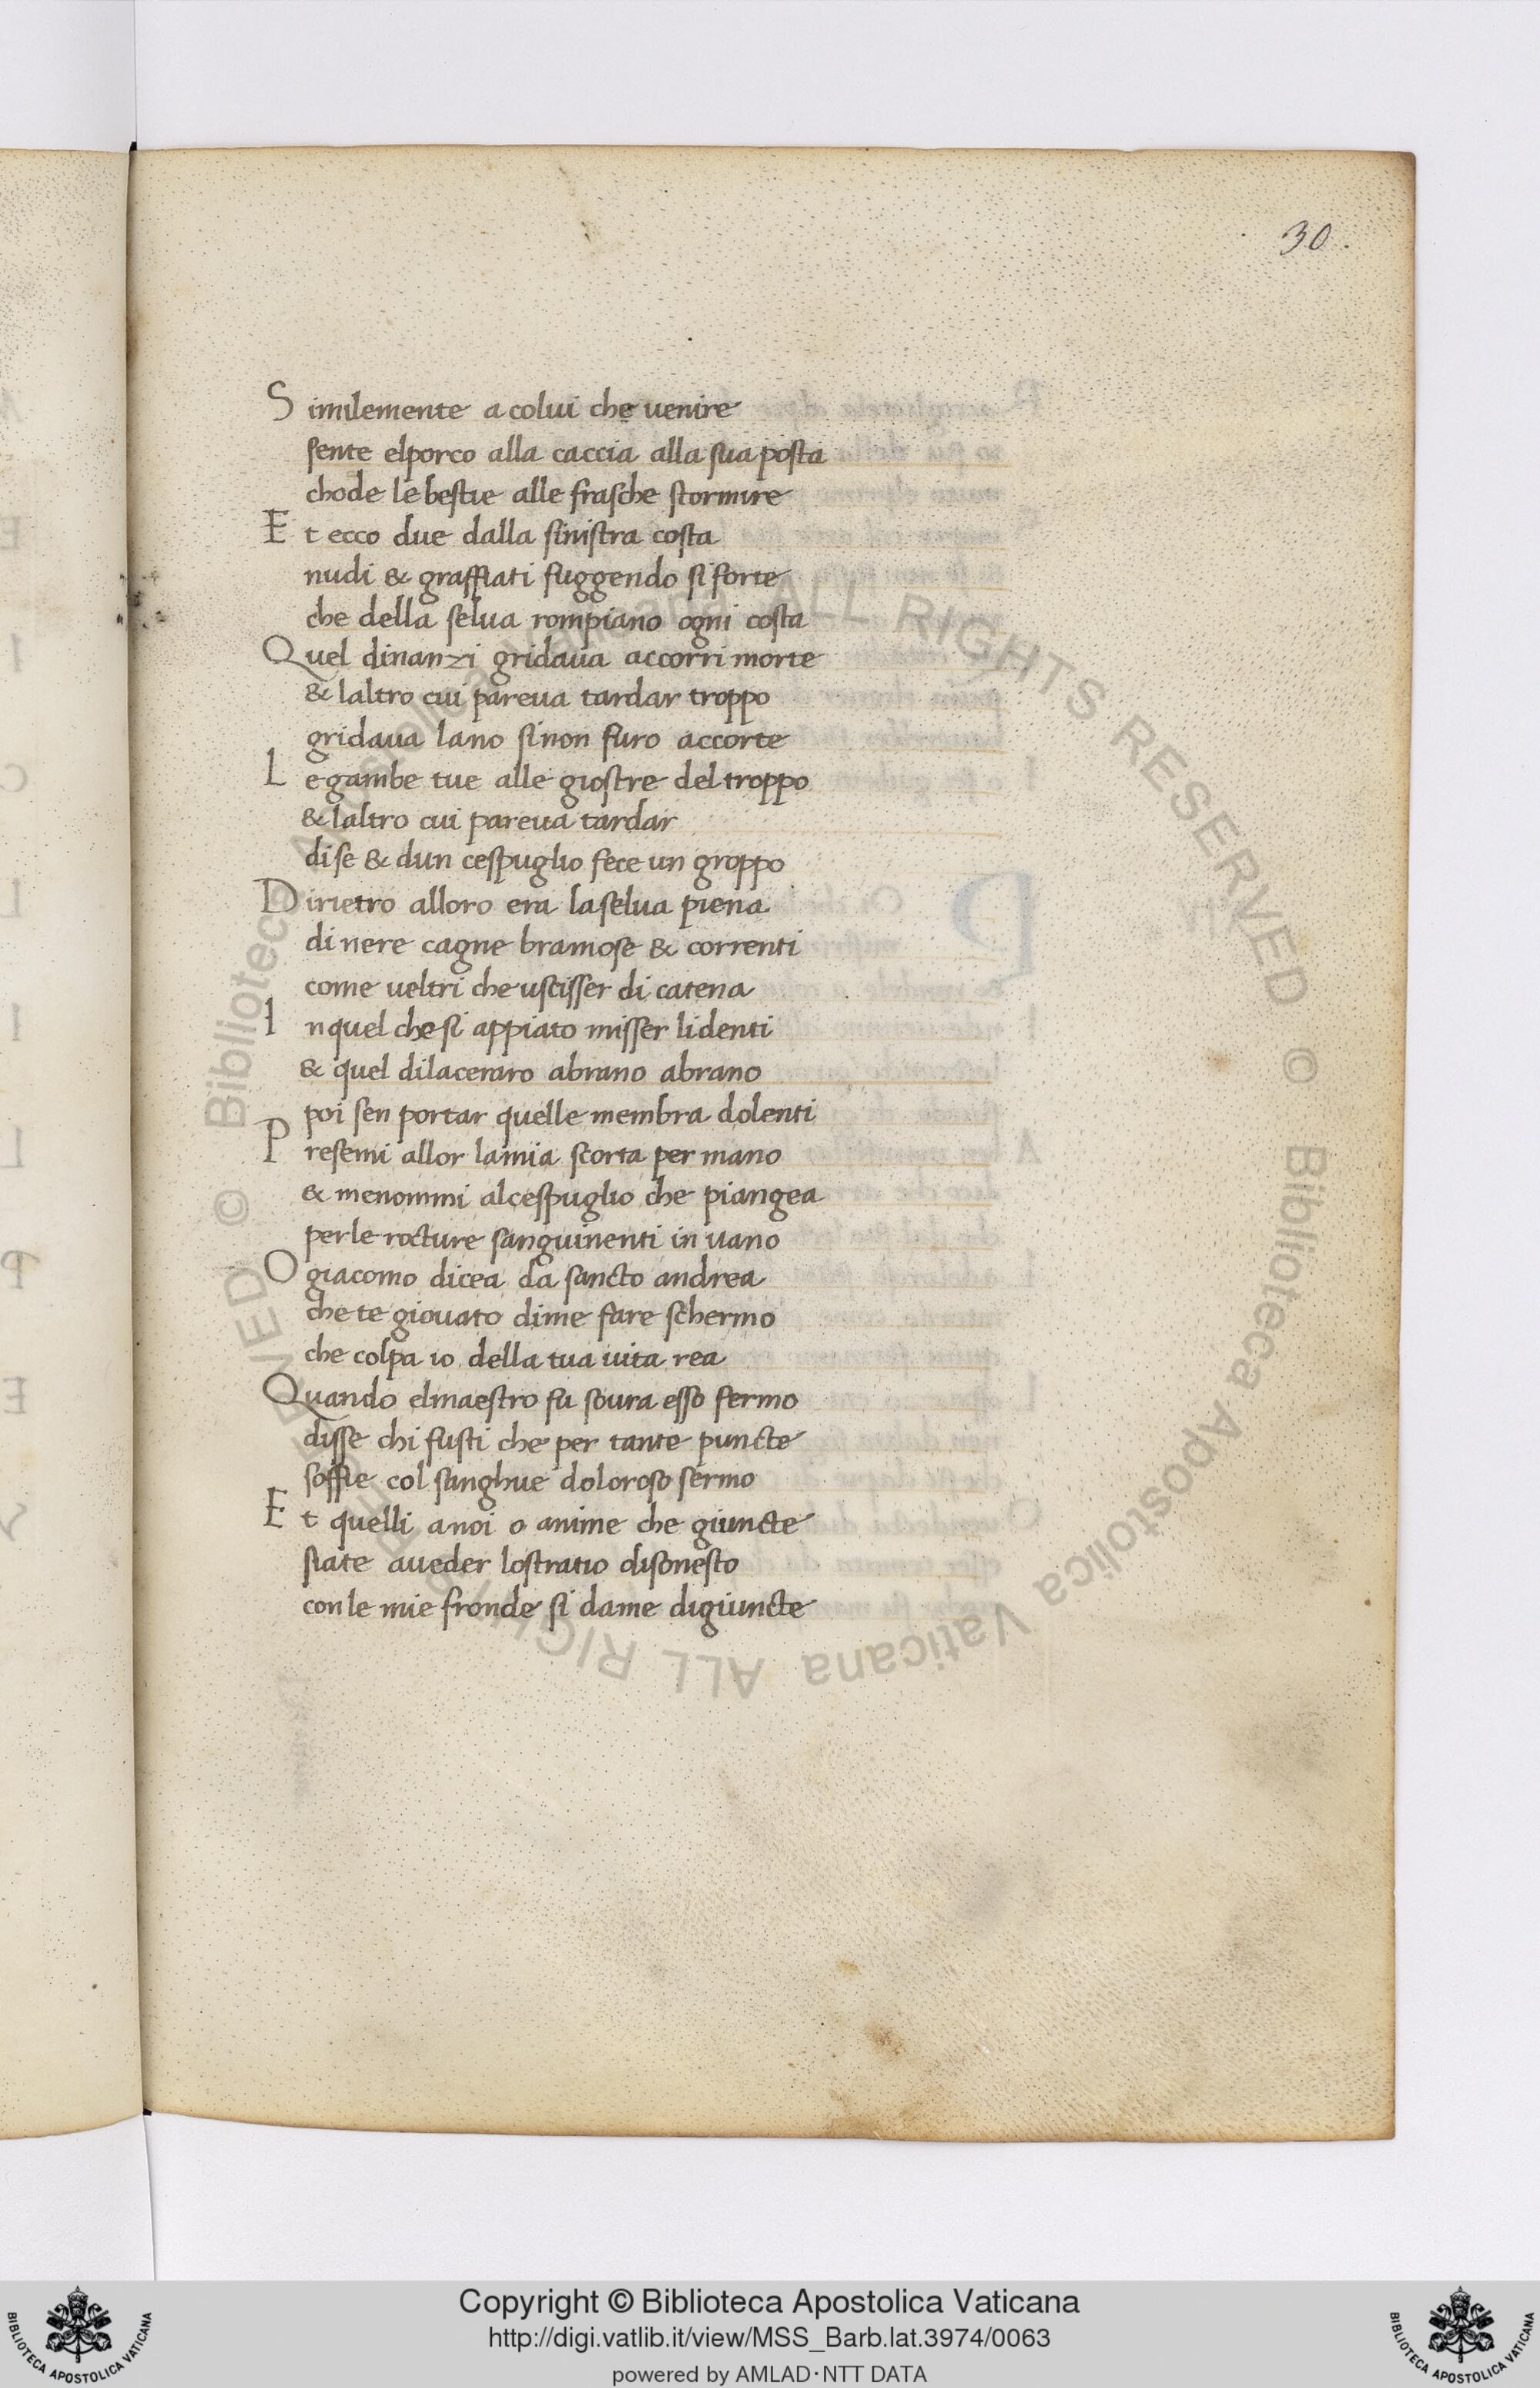 30
Similemente a colui che uenire
sente elporco alla caccia alla sua posta
chode le bestie alle frasche stormire
Et ecco due dalla sinistra costa
nudi & graffiati fuggendo si forte
che della selua rompiano ogni costa
Quel dinanzi gridaua accorri morte
& laltro cui pareua tardar troppo
gridaua lano si non furo accorte
Le gambe tue alle giostre del troppo
& laltro cui pareua tardar
di se & dun cespuglio fece un groppo
Dirietro alloro era la selua piena
di nere cagne bramose & correnti
come ueltri che uscisser di catena
In quel che si appiato misser li denti
& quel dilaceraro abrano abrano
poi sen portar quelle membra dolenti
Presemi allor la mia scorta per mano
& menommi al cespuglio che piangea
per le rocture sanguinenti in uano
O giacomo dicea da sancto andrea
che te giouato dime fare schermo
che colpa io della tua uita rea
Quando elmaestro fu soura esso fermo
disse chi fusti che per tante puncte
soffie col sanghue doloroso sermo
Et quelli anoi o anime che giuncte
siate aueder lo stratio disonesto
con le mie fronde si dame digiuncte
© Biblioteca Apostolica Vaticana ALL RIGHTS RESERVED © Biblioteca Apostolica Vaticana ALL RIGHTS RESERVED
Copyright © Biblioteca Apostolica Vaticana
http://digi.vatlib.it/view/MSS_Barb.lat.3974/0063
powered by AMLAD·NTT DATA
BIBLIOTECA APOSTOLICA VATICANA
BIBLIOTECA APOSTOLICA VATICANA